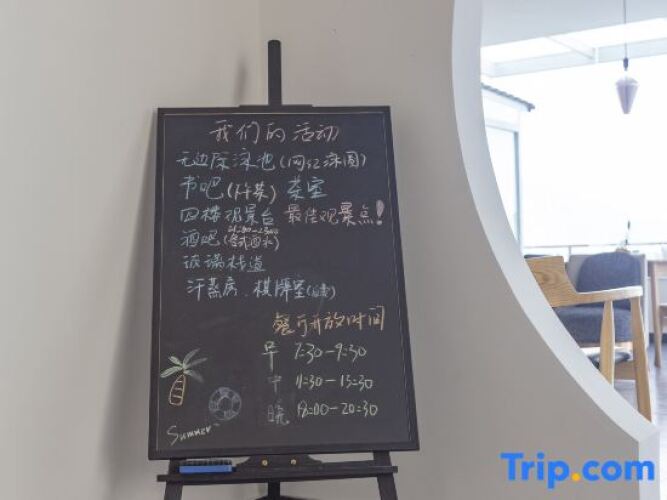 我们的活动
无边际泳池(网红泳圈)
书吧(阡茶) 茶室
四楼观景台 最佳观景点!
酒吧(各式酒水)
玻璃栈道
汗蒸房、棋牌室
餐厅开放时间
早 7:30-9:30
中 11:30-13:30
晚 18:00-20:30
Summer
Trip.com